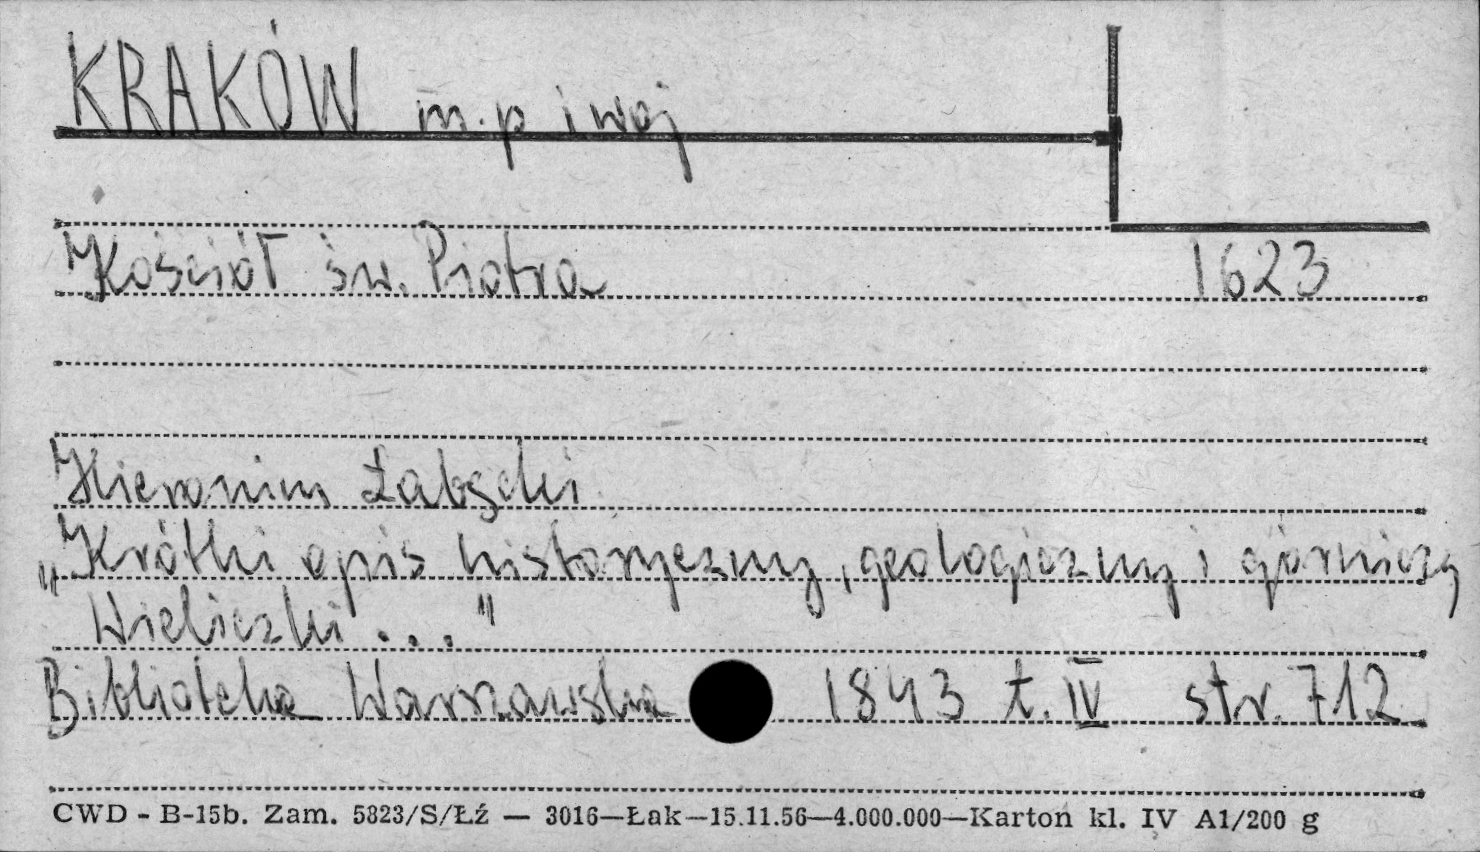 KRAKÓW m. p i woj
Kościół św. Piotra 1623
Hieronim Łabęcki
„Krótki opis historyczny, geologiczny i górniczy
Wieliczki ..."
Biblioteka Warszawska 1843 t. IV str. 712
CWD - B-15b. Zam. 5823/S/Łź — 3016—Łak—15.11.56—4.000.000—Karton kl. IV A1/200 g